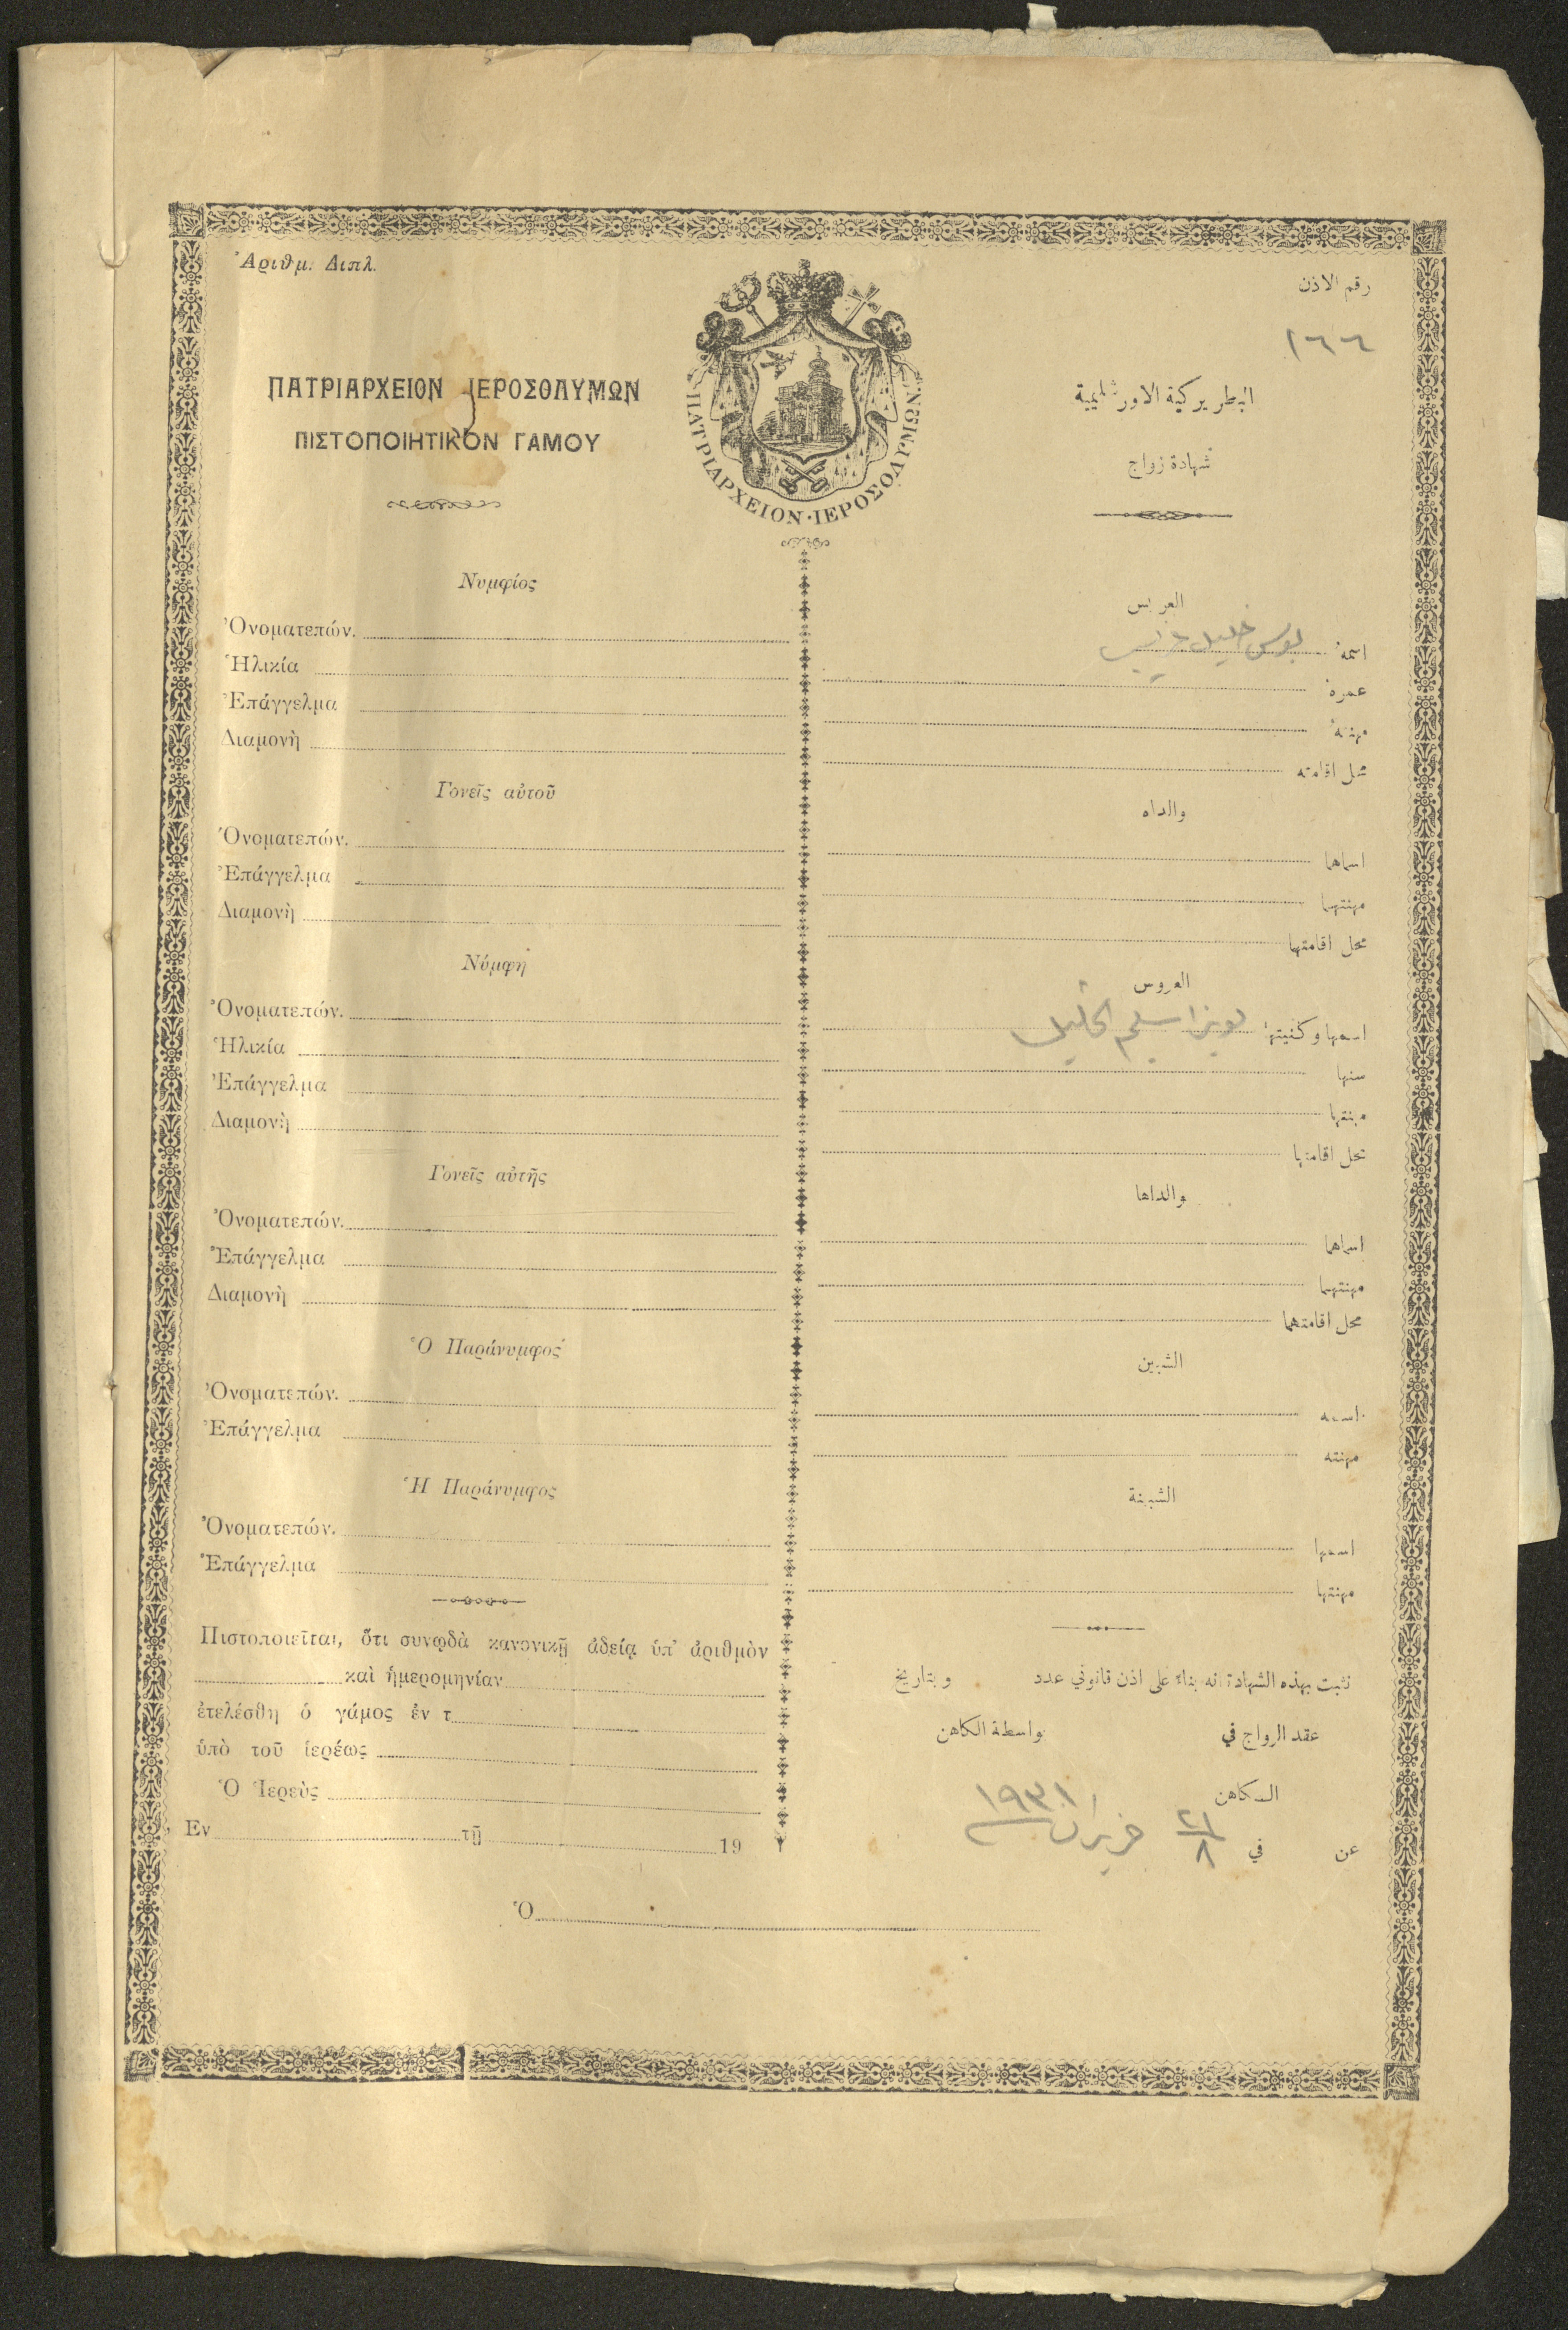 Ἀριθμ. Διπλ.
رقم الاذن
١٦٦
ΠΑΤΡΙΑΡΧΕΙΟΝ ΙΕΡΟΣΟΛΥΜΩΝ
ΠΙΣΤΟΠΟΙΗΤΙΚΟΝ ΓΑΜΟΥ
ΠΑΤΡΙΑΡΧΕΙΟΝ·ΙΕΡΟΣΟΛΥΜΩΝ
البطريركية الاورشليمية
شهادة زواج
Νυμφίος
Ὀνοματεπών.
Ἡλικία
Ἐπάγγελμα
Διαμονὴ
Γονεῖς αὐτοῦ
Ὀνοματεπών.
Ἐπάγγελμα
Διαμονὴ
Νύμφη
Ὀνοματεπών.
Ἡλικία
Ἐπάγγελμα
Διαμονὴ
Γονεῖς αὐτῆς
Ὀνοματεπών.
Ἐπάγγελμα
Διαμονὴ
Ὁ Παράνυμφος
Ὀνοματεπών.
Ἐπάγγελμα
Ἡ Παράνυμφος
Ὀνοματεπών.
Ἐπάγγελμα
Πιστοποιεῖται, ὅτι συνῳδὰ κανονικῇ ἀδείᾳ ὑπ' ἀριθμὸν
καὶ ἡμερομηνίαν
ἐτελέσθη ὁ γάμος ἐν τ
ὑπὸ τοῦ ἱερέως
Ὁ Ἱερεὺς
Ἐν τῇ 19
Ὁ
العريس
اسمه خليل
عمره
مهنته
محل اقامته
والداه
اسماهما
مهنتهما
محل اقامتهما
العروس
اسمها وكنيتها لويزا سليم الخليل
سنها
مهنتها
محل اقامتها
والداها
اسماهما
مهنتهما
محل اقامتهما
الشبين
اسمه
مهنته
الشبينة
اسمها
مهنتها
نثبت بهذه الشهادة انه بناءً على اذن قانوني عدد وبتاريخ
عقد الزواج في بواسطة الكاهن
الكاهن
عن في ٢١/٨ حزيران ١٩٣١